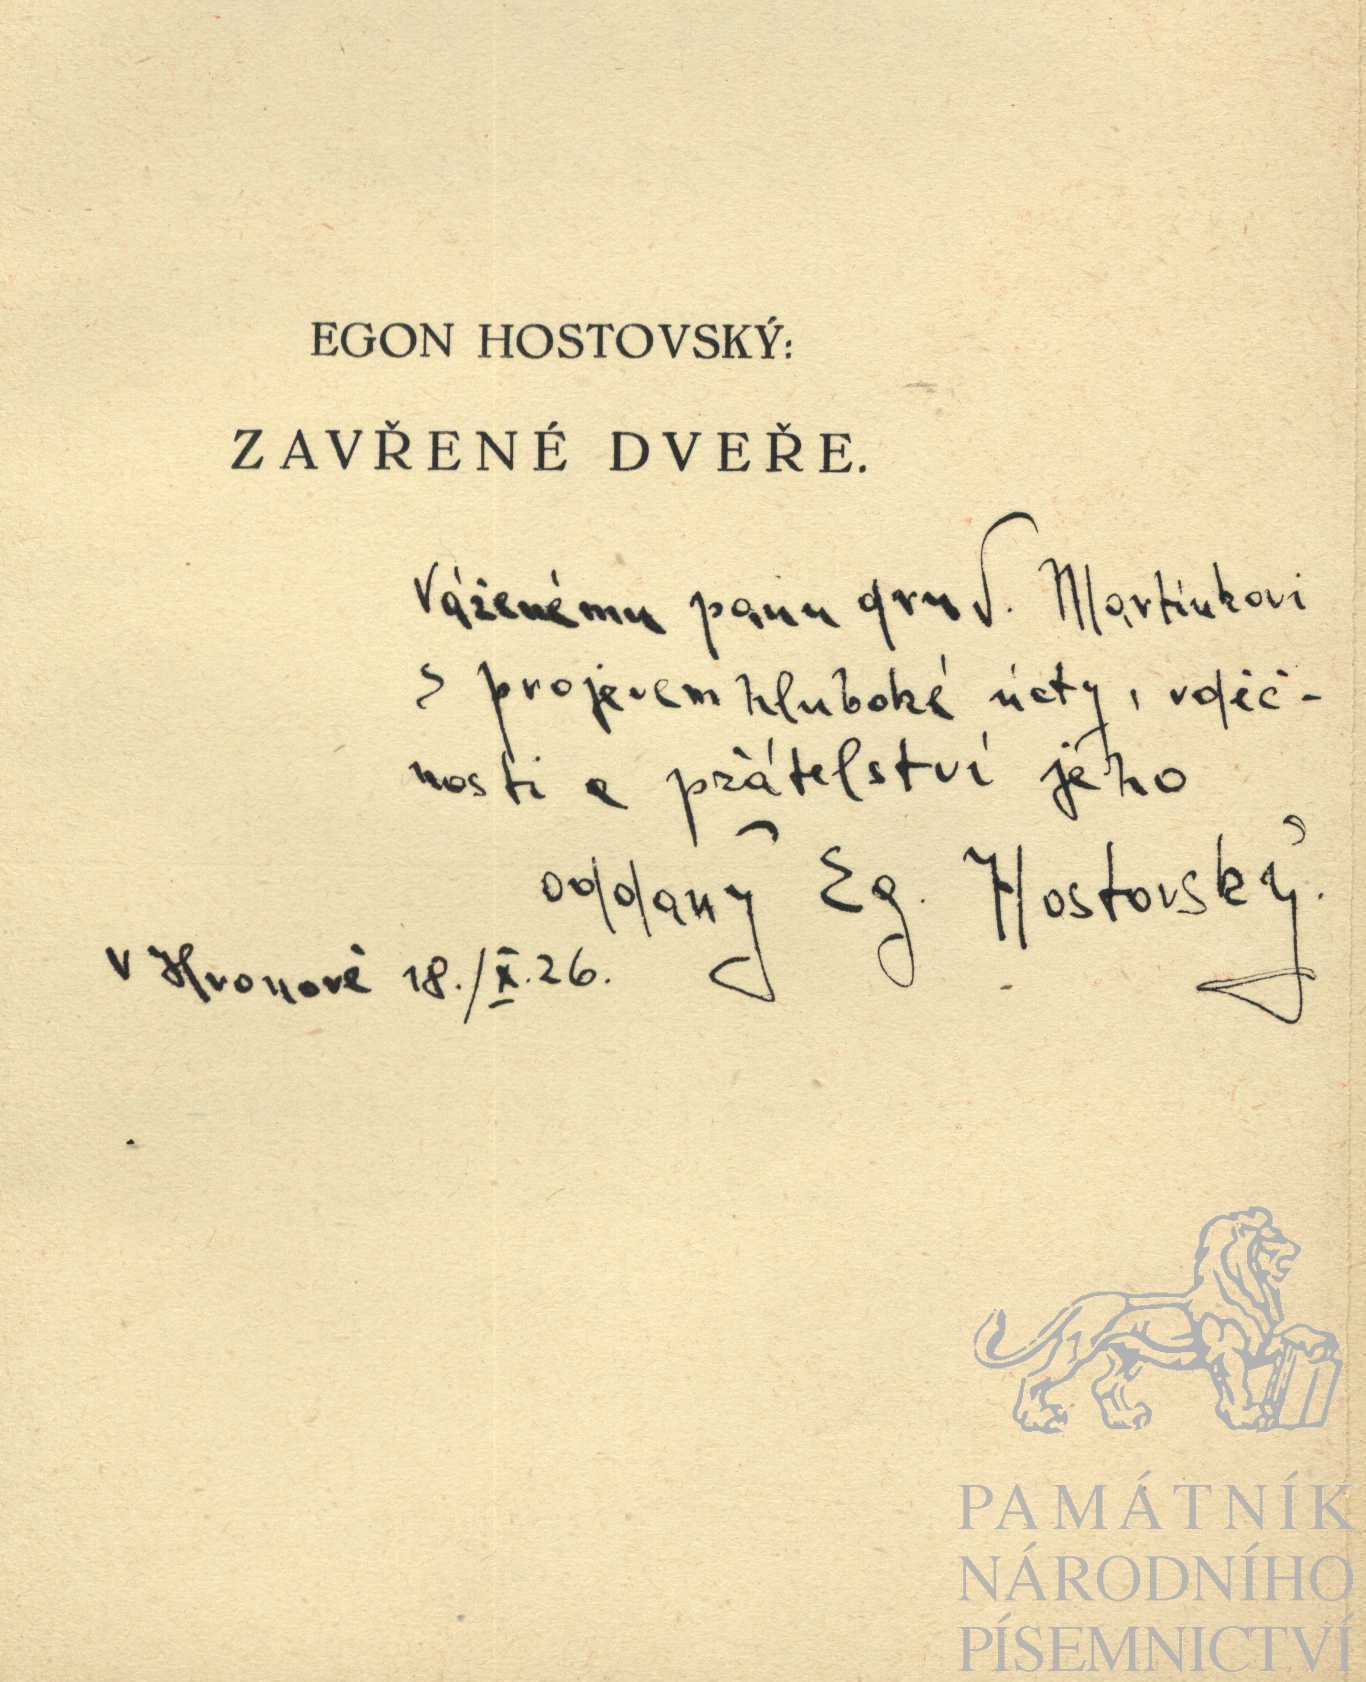 EGON HOSTOVSKÝ:
ZAVŘENÉ DVEŘE.
Váženému panu dru V. Martínkovi
s projevem hluboké úcty, vděč-
nosti a přátelství jeho
oddaný Eg. Hostovský.
V Hronově 18./X.26.
PAMÁTNÍK
NÁRODNÍHO
PÍSEMNICTVÍ